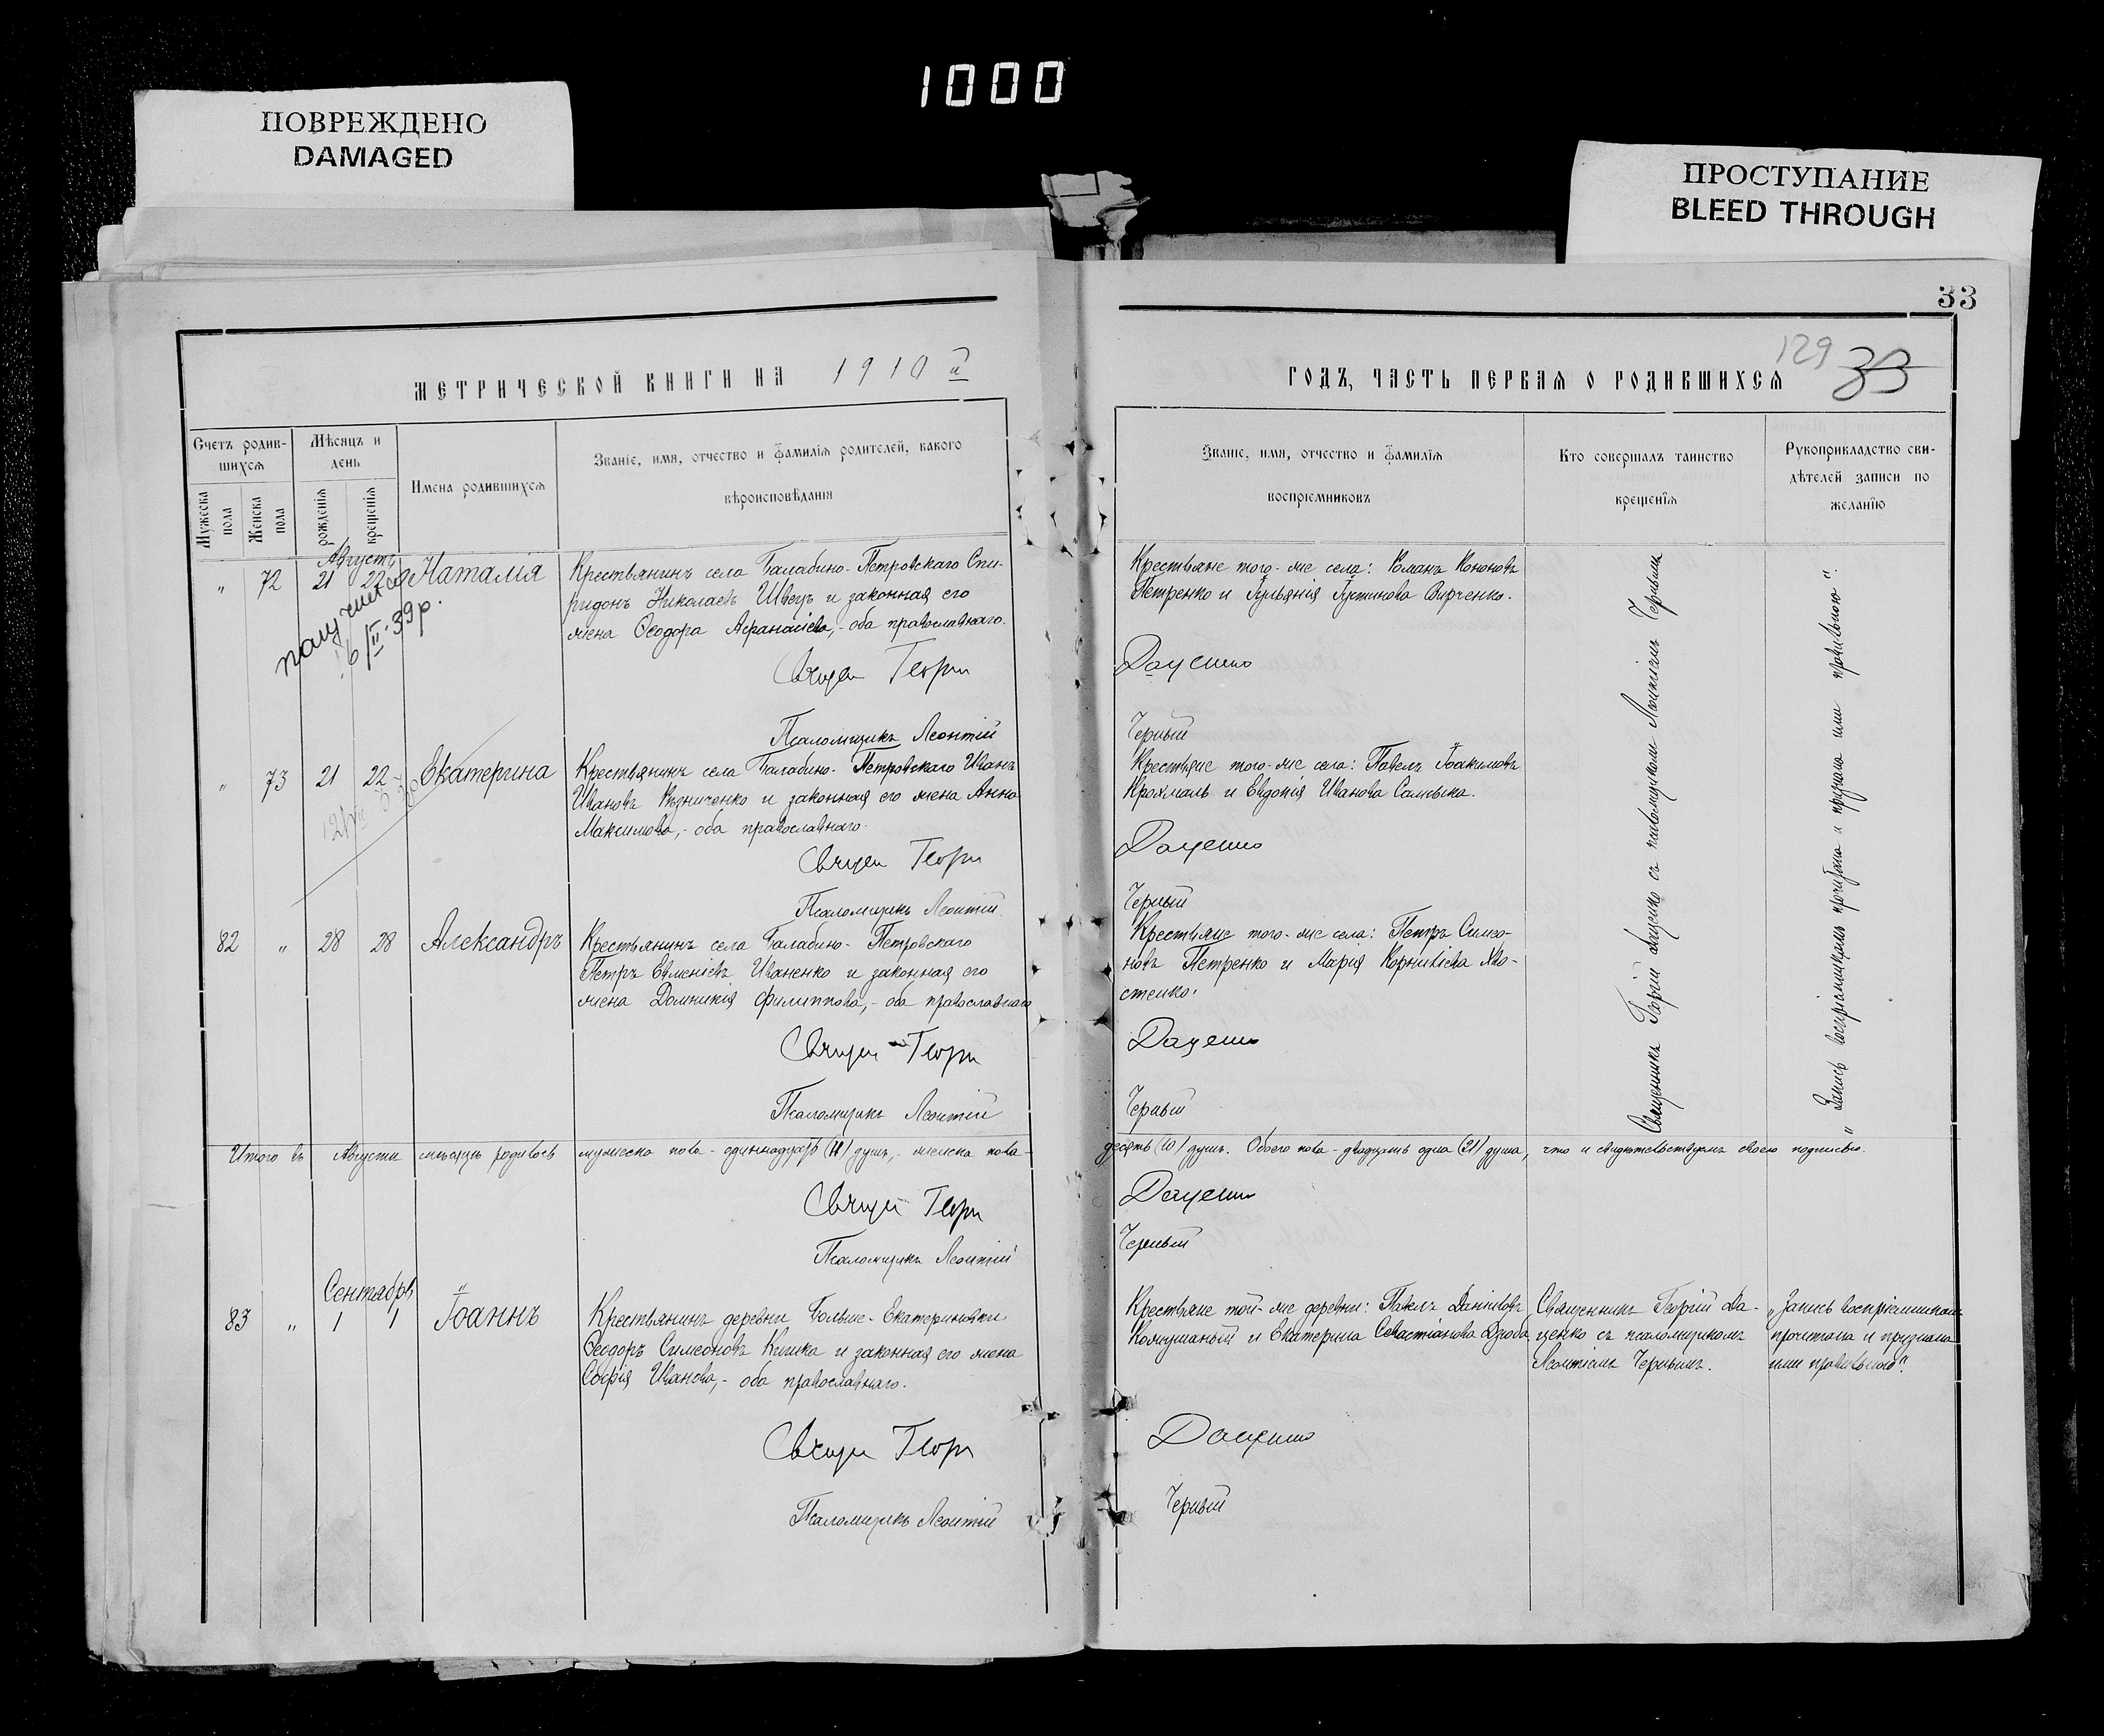 1000
ПОВРЕЖДЕНО
DAMAGED
ПРОСТУПАНИЕ
BLEED THROUGH
33
129 33
МЕТРИЧЕСКОЙ КНИГИ НА 1910 й
ГОДЪ, ЧАСТЬ ПЕРВАЯ О РОДИВШИХСЯ
Счетъ родив-
шихся
Мужеска
пола
Женска
пола
Мѣсяцъ и
день
рожденія
крещенія
Имена родившихся
Званіе, имя, отчество и фамилія родителей, какого
вѣроисповѣданія
Званіе, имя, отчество и фамилія
воспріемниковъ
Кто совершалъ таинство
крещенія
Рукоприкладство сви-
дѣтелей записи по
желанію
Августъ
„ 72 21 22 Наталія
6/III-39р.
Крестьянинъ села Балабино-Петровскаго Спи-
ридонъ Николаевъ Швецъ и законная его
жена Ѳеодора Аѳанасіева,- оба православнаго.
Священ Георгі
Псаломщикъ Леонтій
Крестьяне того-же села: Романъ Кононовъ
Петренко и Іульянія Іустинова Вирченко.
Даценко
Черный
„ 73 21 22 Екатерина
Крестьянинъ села Балабино-Петровскаго Иванъ
Ивановъ Рѣзниченко и законная его жена Анна
Максимова,- оба православнаго.
Священ Георгі
Псаломщикъ Леонтій
Крестьяне того-же села: Павелъ Іоакимовъ
Крохмаль и Евдокія Иванова
Даценко
Черный
82 „ 28 28 Александръ
Крестьянинъ села Балабино-Петровскаго
Петръ Евменіевъ Иваненко и законная его
жена Домникія Филиппова,- оба православнаго
Священ Георгі
Псаломщикъ Леонтій
Крестьяне того-же села: Петръ Симео-
новъ Петренко и Марія Корниліева Хво-
стенко.
Даценко
Черный
Священникъ Георгій Даценко съ псаломщикомъ Леонтіемъ Чернымъ
„Запись воспріемникамъ прочитана и признана ими правильною“.
Итого въ Августѣ мѣсяцѣ родилось мужеска пола - одиннадцать (11) душъ,- женска пола -
десять (10) душъ. Обоего пола - двадцать одна (21) душа, что и свидѣтельствуемъ своею подписью.
Священ Георгі
Даценко
Псаломщикъ Леонтій
Черный
Сентябрь
83 „ 1 1 Іоаннъ
Крестьянинъ деревни Больше-Екатериновки
Ѳеодоръ Симеоновъ Кишка и законная его жена
Софія Иванова,- оба православнаго.
Священ Георгі
Псаломщикъ Леонтій
Крестьяне той-же деревни: Павелъ Даниловъ
и Екатерина Севастіанова Дзюба
Даценко
Черный
Священникъ Георгій Да-
ценко съ псаломщикомъ
Леонтіемъ Чернымъ.
„Запись воспріемникамъ
прочитана и признана
ими правильною“.